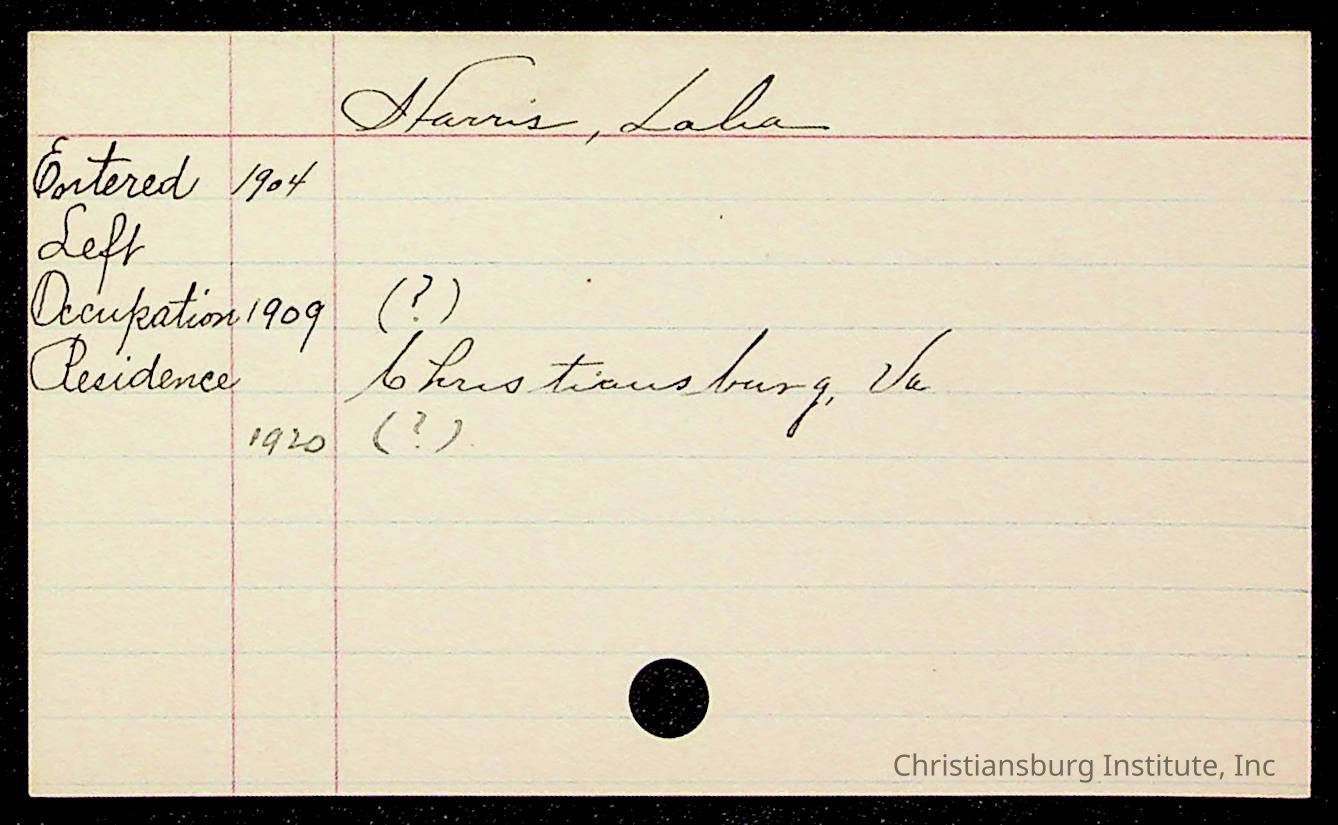 Harris, Lalia
Entered 1904
Left
Occupation 1909 (?)
Residence Christiansburg, Va
1920 (?)
Christiansburg Institute, Inc